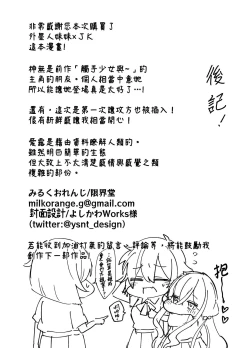 後記！
非常感謝您本次購買了
外星人妹妹xJK
這本漫畫！
神無是前作「觸手少女與~」的
主角的朋友。個人相當中意她
所以能讓她登場真是太好了…！
還有，這次是第一次讓攻方也被插入！
很有新鮮感讓我相當開心！
愛露是藉由資料瞭解人類的。
雖然明白簡單的生態
但大致上不太清楚感情與感覺之類
複雜的部份。
みるくおれんじ/限界堂
milkorange.g@gmail.com
封面設計/よしかわWorks様
(twitter:@ysnt_design)
若能收到加油打氣的留言、評論等，將能鼓勵我
創作下一部作品！
抱～